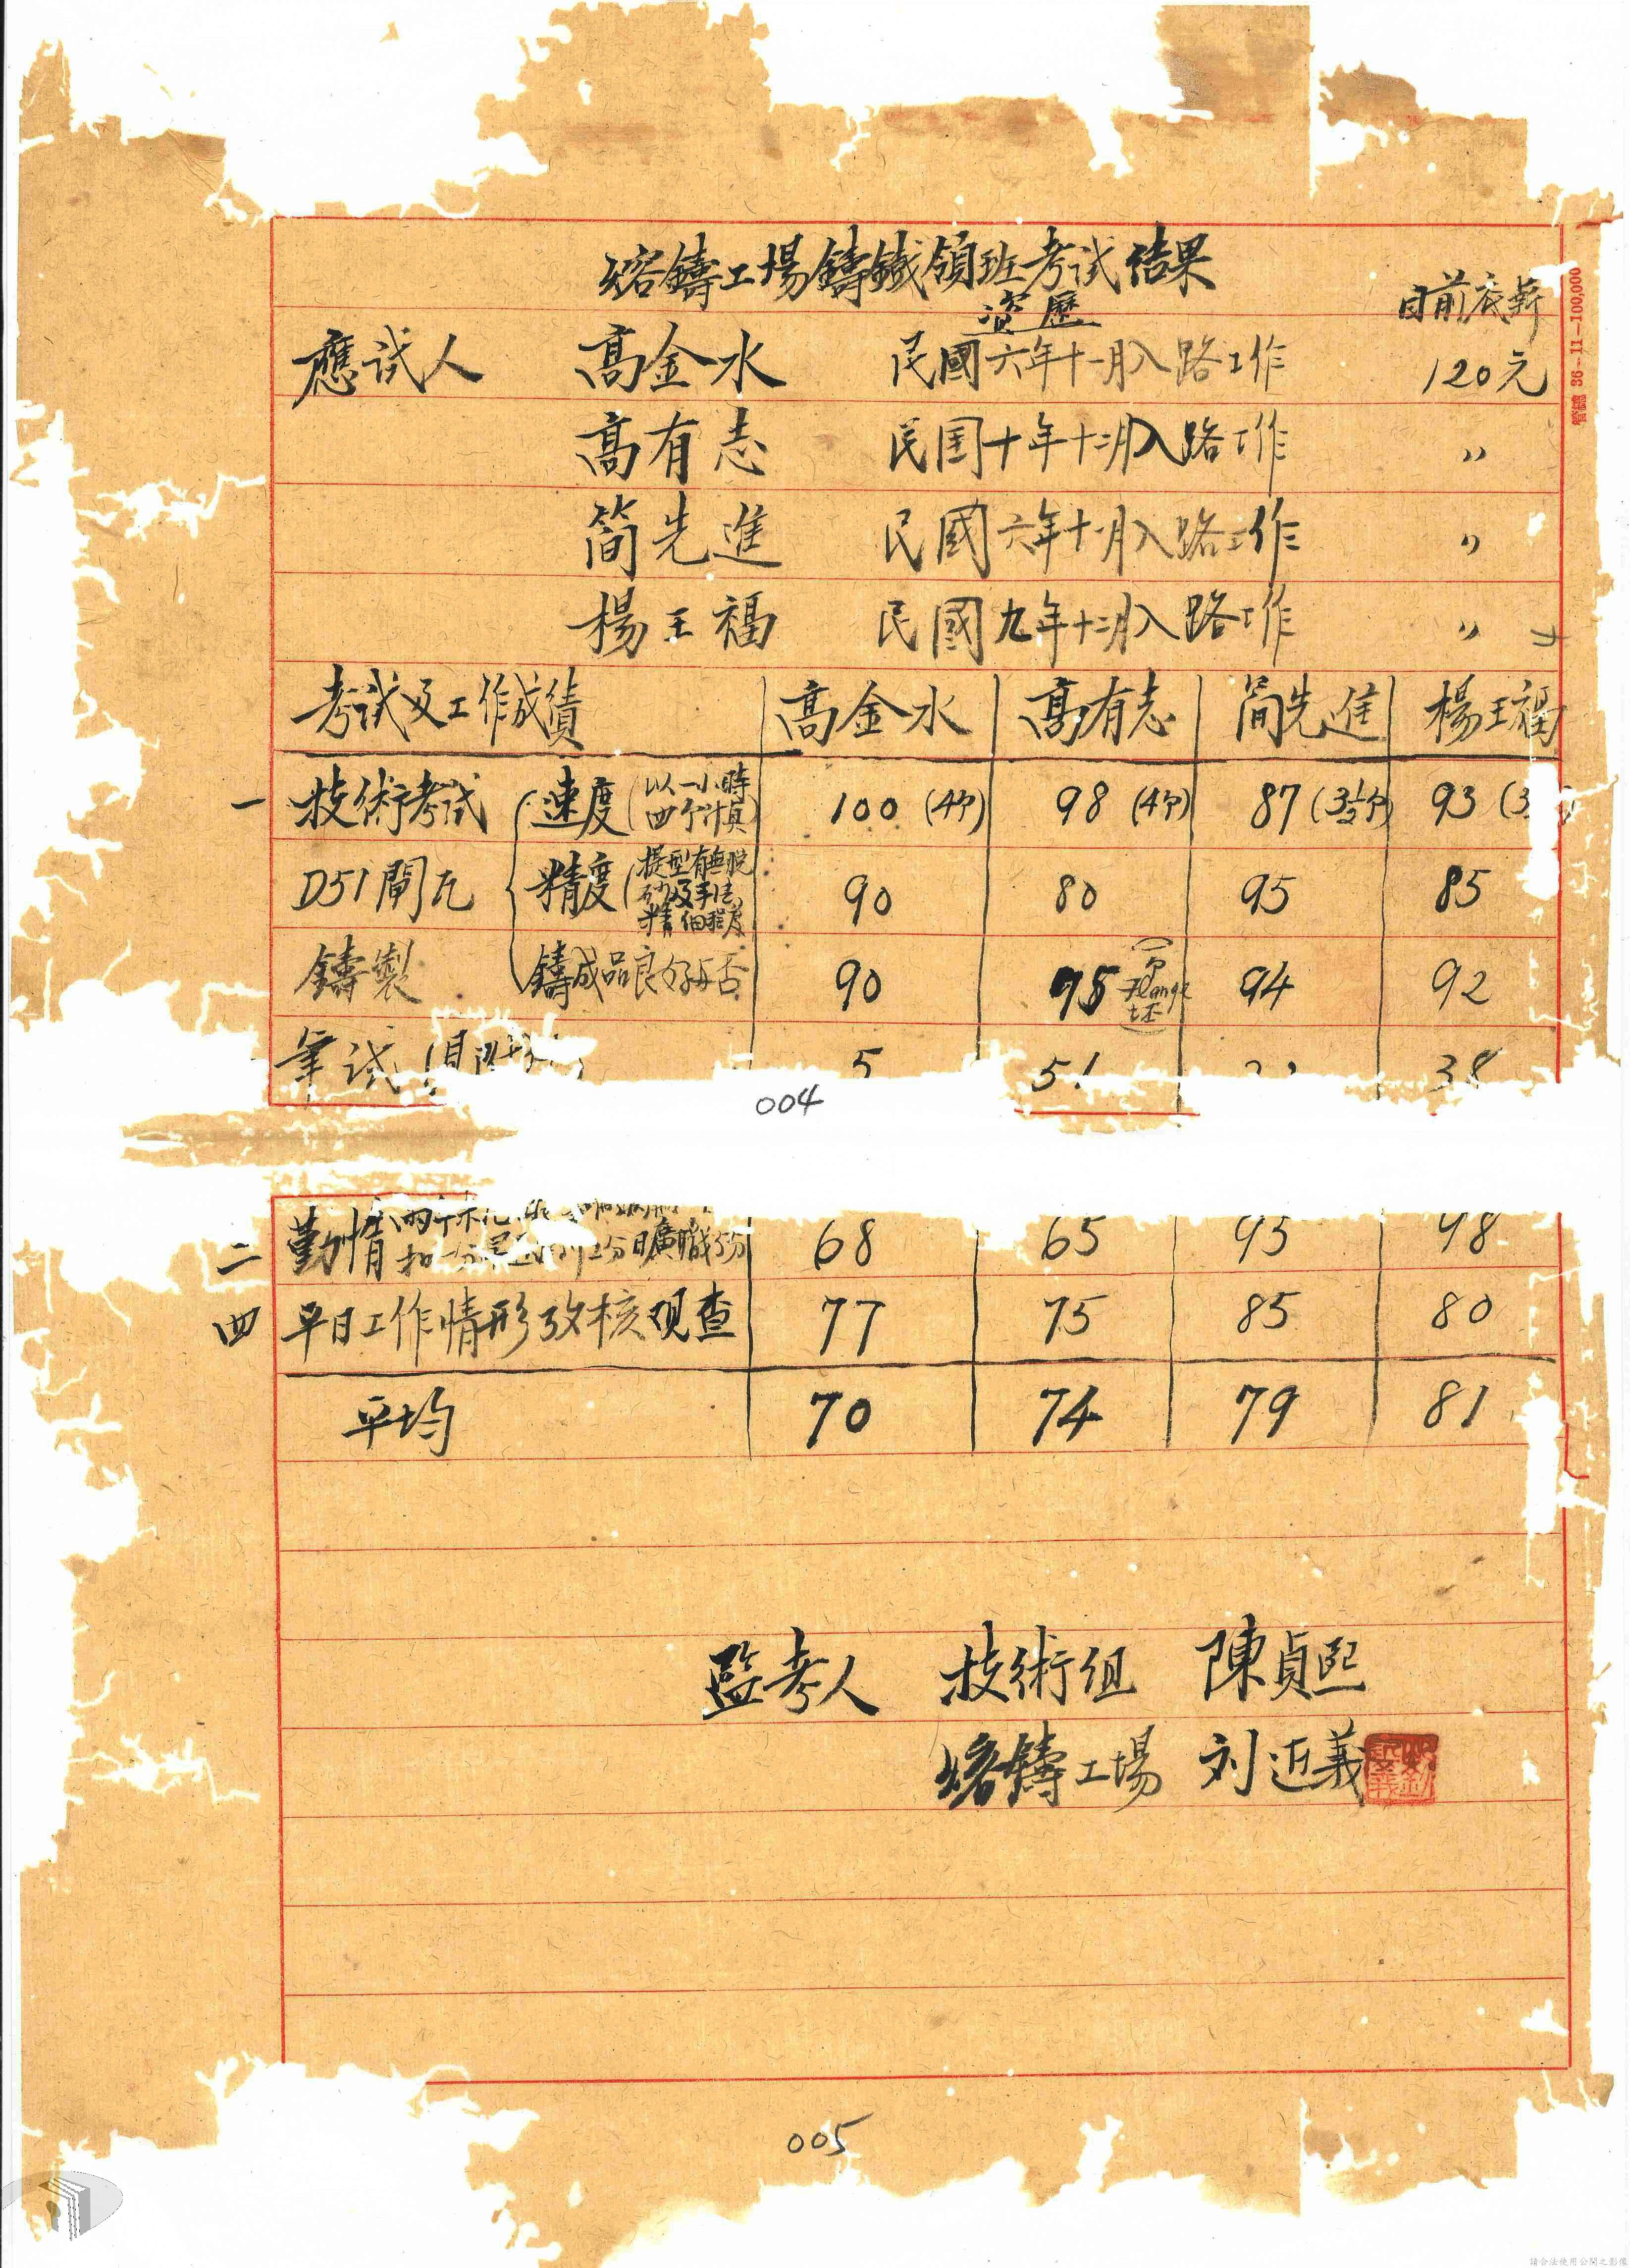 熔鑄工場鑄鐵領班考試結果
資歷 目前底薪
應試人 高金水 民國六年十一月入路工作 120元
高有志 民国十年十二月入路工作 〃
簡先進 民國六年十一月入路工作 〃
楊王福 民國九年十二月入路工作 〃
管總 36-11-100,000
考試及工作成績 高金水 高有志 簡先進 楊王福
一 技術考試 速度(以一小時四个計算) 100 (4个) 98 (4个) 87 (3½个) 93 (3
D51閘瓦 精度(提型有無脫砂及手法精細程度 90 80 95 85
鑄製 鑄成品良好與否 90 75 (一个Flange坯) 94 92
筆試 5 51 38
004
二 勤惰 扣一分 曠職5分 68 65 95 98
四 平日工作情形攷核观查 77 75 85 80
平均 70 74 79 81
監考人 技術組 陳貞熙
熔鑄工場 刘近義
005
請合法使用公開之影像